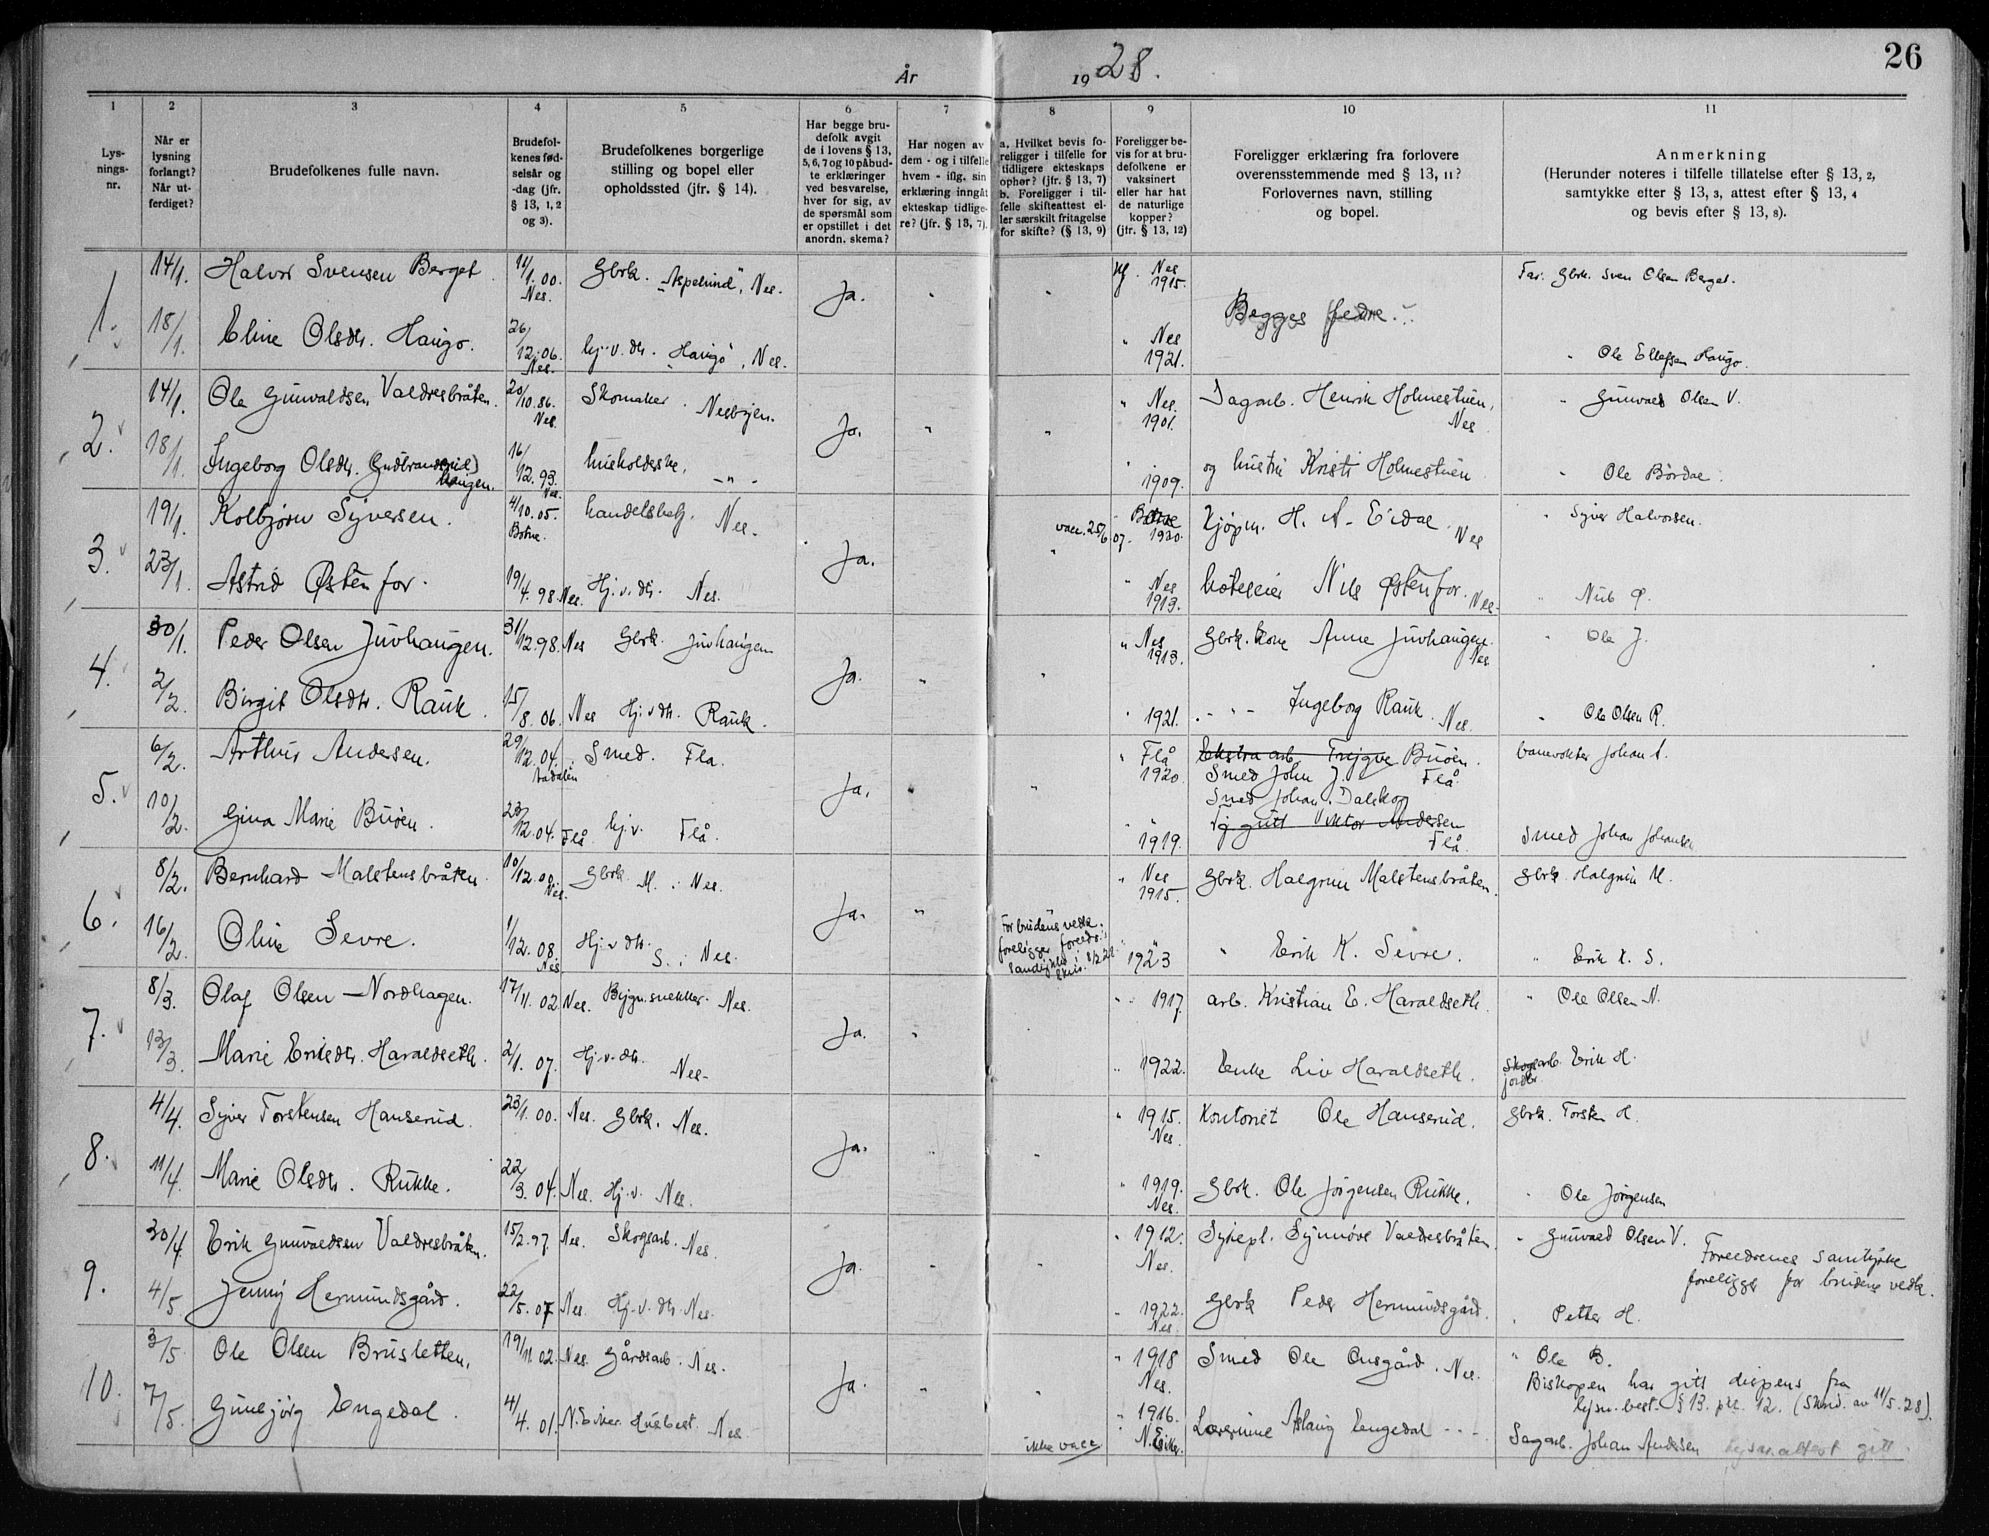 26
År 1928.
1 2 3 4 5 6 7 8 9 10 11
Lys-
nings-
nr.
Når er
lysning
forlangt?
Når ut-
ferdiget?
Brudefolkenes fulle navn.
Brudefol-
kenes fød-
selsår og
-dag (jfr.
§ 13, 1, 2
og 3).
Brudefolkenes borgerlige
stilling og bopel eller
opholdssted (jfr. § 14).
Har begge bru-
defolk avgit
de i lovens § 13,
5, 6, 7 og 10 påbud-
te erklæringer
ved besvarelse,
hver for sig, av
de spørsmål som
er opstillet i det
anordn. skema?
Har nogen av
dem - og i tilfelle
hvem - iflg. sin
erklæring inngått
ekteskap tidlige-
re? (jfr. § 13, 7).
a. Hvilket bevis fo-
religger i tilfelle for
tidligere ekteskaps
ophør? (jfr. § 13, 7)
b. Foreligger i til-
felle skifteattest el-
ler særskilt fritagelse
for skifte? (§ 13, 9)
Foreligger be-
vis for at bru-
defolkene er
vaksinert
eller har hat
de naturlige
kopper?
(jfr. § 13, 12)
Foreligger erklæring fra forlovere
overensstemmende med § 13, 11?
Forlovernes navn, stilling
og bopel.
Anmerkning
(Herunder noteres i tilfelle tillatelse efter § 13, 2,
samtykke efter § 13, 3, attest efter § 13, 4
og bevis efter § 13, 8).
1. 14/1. Halvor Svensen Berget. 11/1.00. Nes. Gbrk. "Aspelund", Nes. Ja. " " Nes 1915. Begges fedre. Far. Gbrk. Sven Olsen Berget.
18/1. Eline Olsdtr. Haugo. 26/12.06. Nes. hj.v. dtr. "Haugo", Nes. " Nes 1921. " Ole Ellefsen Haugo.
2. 14/1. Ole Gunvaldsen Valdresbråten. 20/10.86. Nes. Skomaker. Nesbyen. Ja. " " " Nes. 1901. Dagarb. Henrik Holmestuen, Nes " Gunvald Olsen V.
18/1. Ingeborg Olsdtr. (Gudbrandsrud) haugen. 16/12.93. Nes. husholderske, - " - " 1909. og hustru Kristi Holmestuen " Ole Bördal.
3. 19/1. Kolbjørn Syversen. 4/10.05. Botne. handelsbetj. Nes. Ja. " vacc. 25/6 07. Botne 1920. Kjøpm. H. A. Eidal. Nes " Syver Halvorsen.
23/1. Astrid Østenfor. 19/4.98. Nes. Hj.v. dtr. Nes. " Nes 1913. hoteleier Nils Østenfor. Nes. " Nils Ø.
4. 30/1. Peder Olsen Juvhaugen. 31/12.98. Nes Gbrk. Juvhaugen Ja. " " " Nes 1913. Gbrk. kone Anne Juvhaugen. Nes " Ole J.
2/2. Birgit Olsdtr. Rauk. 15/8.06. Nes Hj.v dtr. Rauk. " 1921. - " - Ingeborg Rauk. Nes. " Ole Olsen R.
5. 6/2. Arthur Andersen. 29/12.04. Aadalen Smed. Flå. Ja. " " " Flå 1920. Ekstra arb. Trygve Buöen. Flå. banevokter Johan A.
Smed John J.
10/2. Gina Marie Buöen. 23/12.04. Flå hj.v. Flå. " 1919. Smed Johan Dalskog
Viktor Andersen Flå. Smed Johan Johansen
6. 8/2. Bernhard Malstensbråten. 10/12.00. Nes. Gbrk. M. : Nes. Ja. " " " Nes 1915. Gbrk. Halgrim Malstensbråten. Gbrk. Halgrim M.
16/2. Oline Sevre. 1/12.08. Nes Hj.v dtr. S. : Nes. For brudens vedk. foreligger " 1923 " Erik K. Sevre. " Erik K. S.
7. 8/3. Olaf Olsen Nordhagen. 17/11.02. Nes. Bygn.snekker. Nes. Ja. " " " 1917. arb. Kristian E. Haraldseth. " Ole Olsen N.
13/3. Marie Eriksdtr. Haraldseth. 2/1.07. Hj.v. dtr. Nes. " 1922. Enke Liv Haraldseth. Skogsarb. Erik H.
jordbr.
8. 4/4. Syver Torstensen Hanserud. 23/1.00. Nes. Gbrk. Nes. Ja. " " " 1915. Nes. Kontorist Ole Hanserud. Gbrk. Torsten H.
11/4. Marie Olsdtr. Rukke. 22/3.04. Nes. Hj.v. Nes. " 1919. Nes. Gbrk. Ole Jörgensen Rukke. " Ole Jörgensen
9. 30/4. Erik Gunvaldsen Valdresbråten. 15/2.97. Nes. Skogsarb. Nes. Ja. " " " 1912. Nes. Sykepl. Synnöve Valdresbråten. " Gunvald Olsen V. Foreldrenes samtykke
foreligger for brudens vedk.
4/5. Jenny Hermundsgård. 22/5.07 Nes. Hj.v. dtr. Nes. " 1922. Nes. Gbrk Peder Hermundsgård. " Petter H.
10. 3/5. Ole Olsen Brusletten. 19/11.02. Nes. gårdsarb. Nes. Ja. " " " 1918 Nes. Smed Ole Onsgård. Nes. " Ole B.
Biskopen har gitt dispens fra
lysn. best. § 13. pkt. 12. (Skriv. av 11/5.28).
7/5. Gunbjörg Engedal. 4/4.01. N. Eiker. Husbest. Nes ikke vacc. " 1916. N. Eiker. Lærerinne Aslaug Engedal - " - Sagarb. Johan Andersen Lysn.attest gitt.